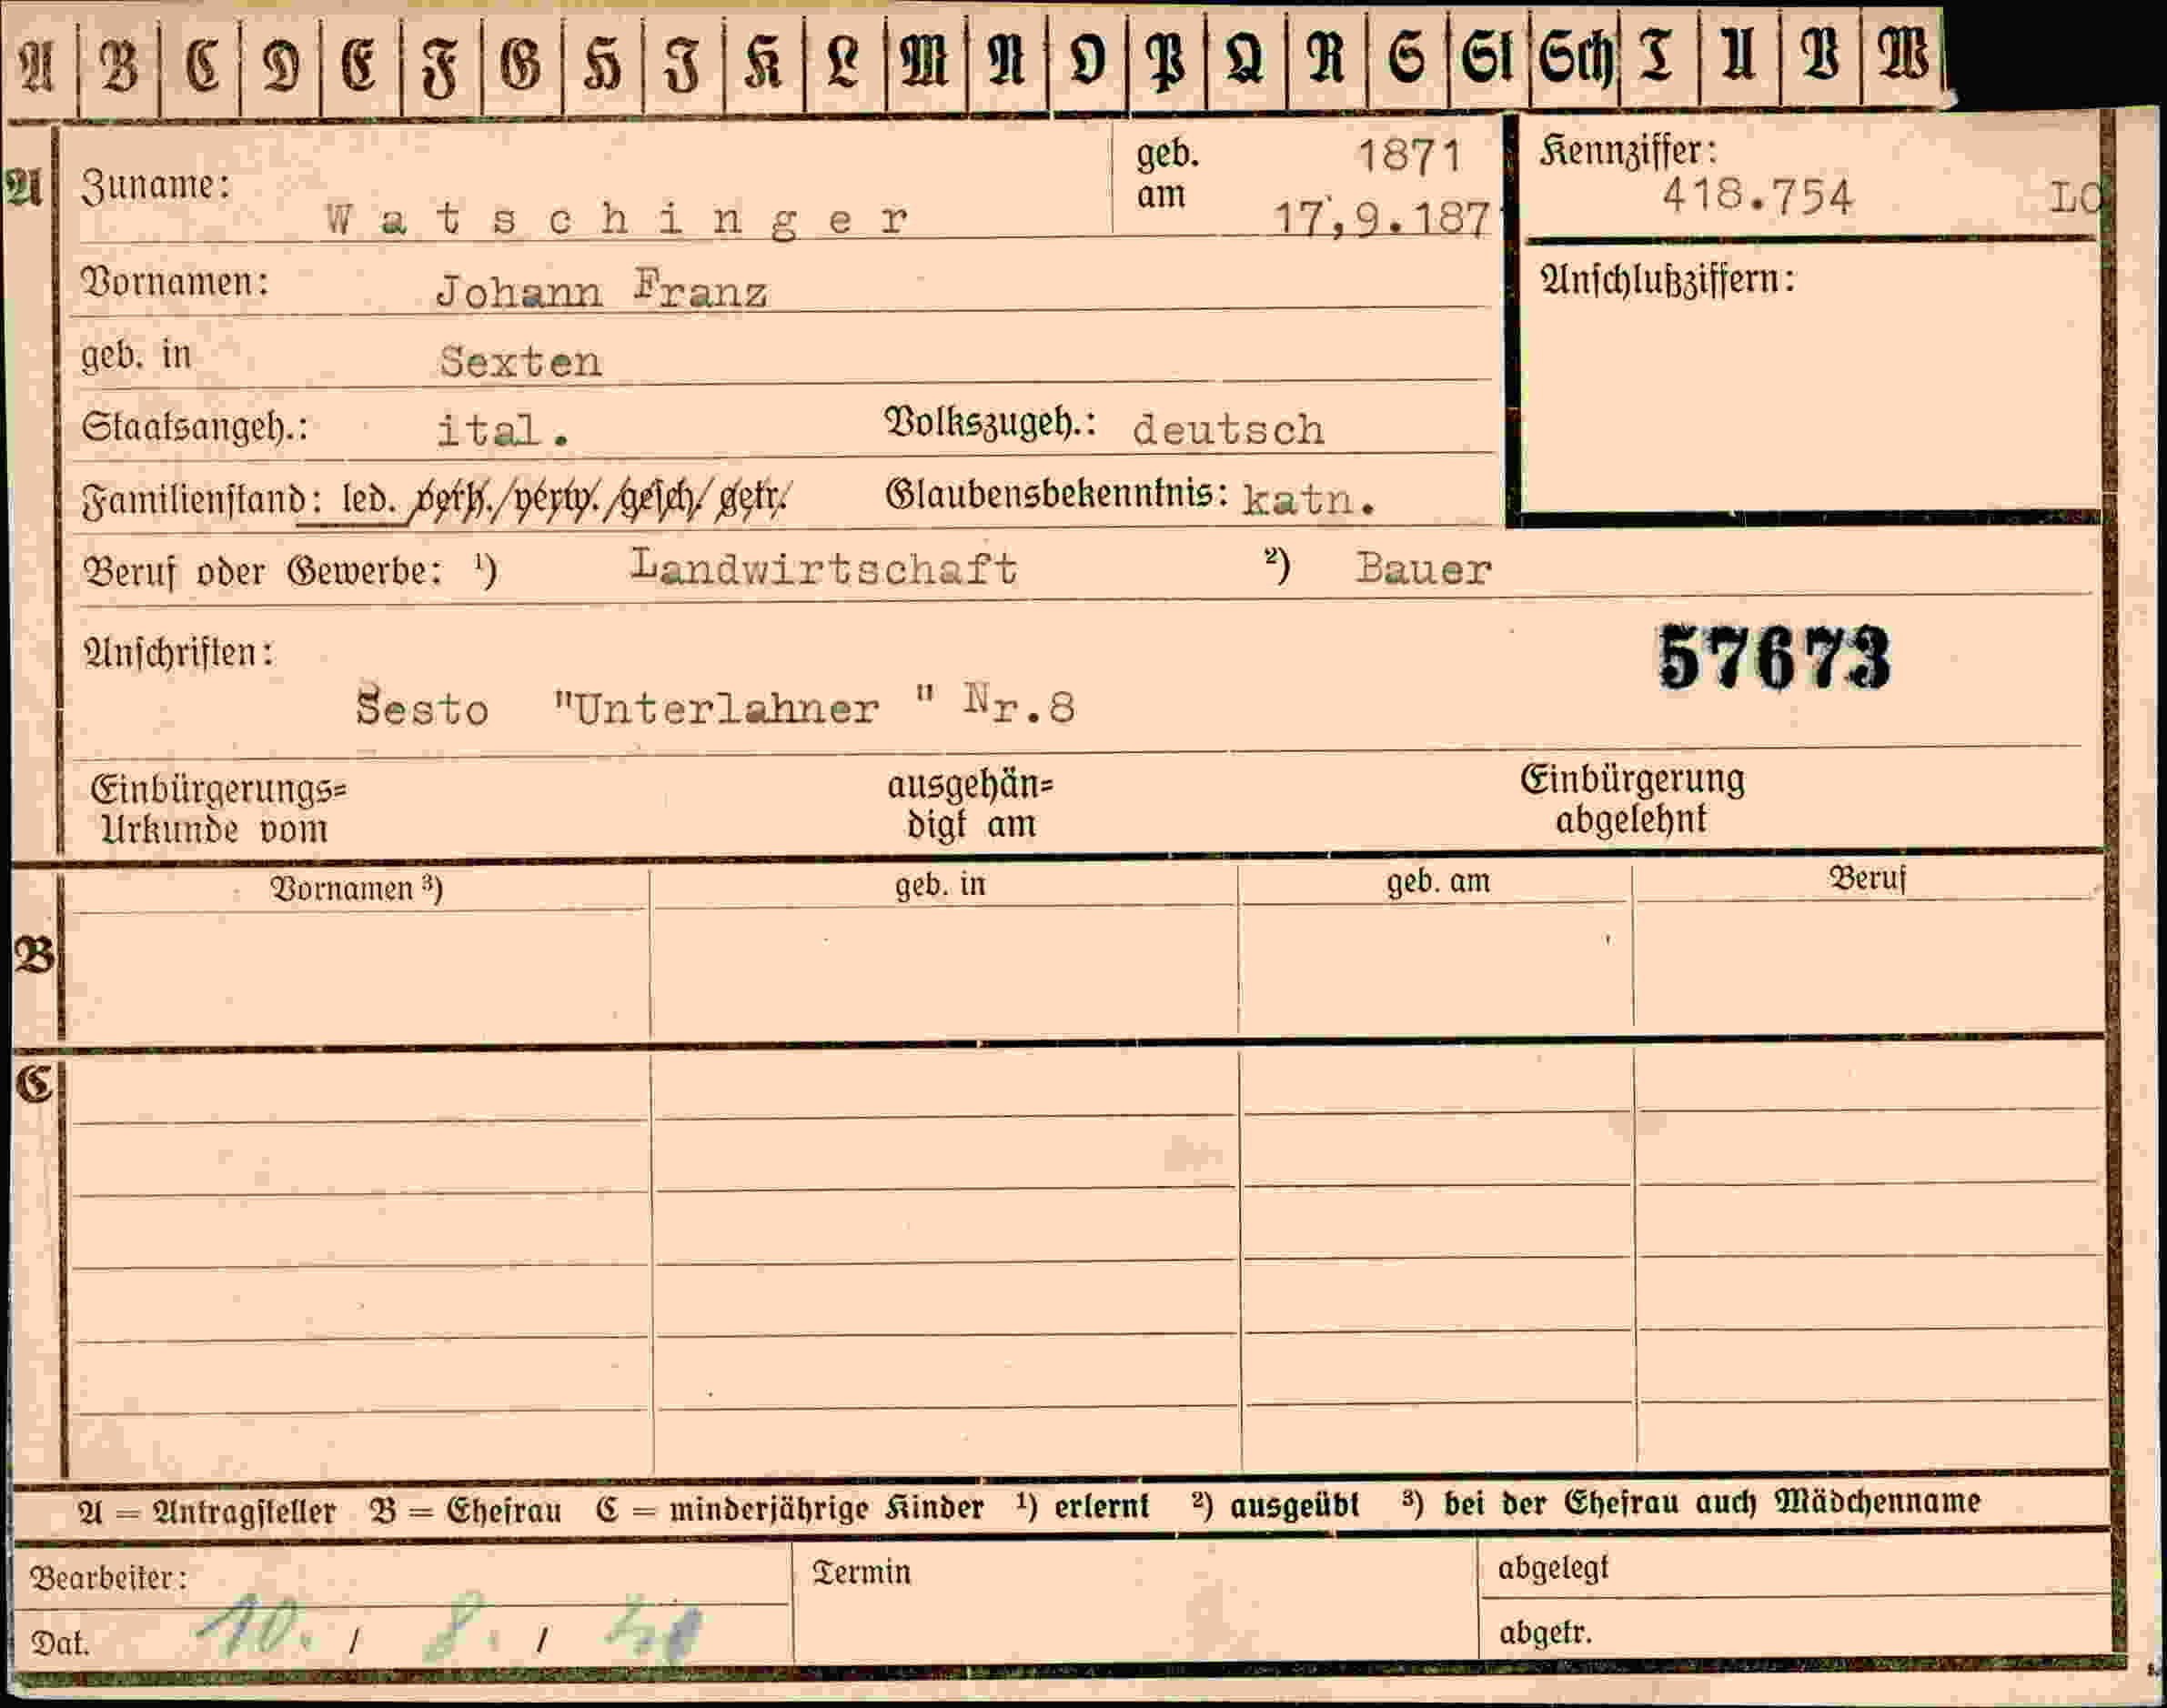 A B C D E F G H I K L M N O P Q R S St Sch T U V W
A Zuname: Watschinger geb. am 1871 17,9.187 Kennziffer: 418.754 LO
Vornamen: Johann Franz Anschlußziffern:
geb. in Sexten
Staatsangeh.: ital. Volkszugeh.: deutsch
Familienstand: led. verh./verw./gesch/getr. Glaubensbekenntnis: kath.
Beruf oder Gewerbe: ¹) Landwirtschaft ²) Bauer
Anschriften: 57673
Sesto "Unterlahner " Nr.8
Einbürgerungs= ausgehän= Einbürgerung
Urkunde vom digt am abgelehnt
Vornamen ³) geb. in geb. am Beruf
B
C
A = Antragsteller B = Ehefrau C = minderjährige Kinder ¹) erlernt ²) ausgeübt ³) bei der Ehefrau auch Mädchenname
Bearbeiter: Termin abgelegt
Dat. 10. / 8. / 40 abgetr.